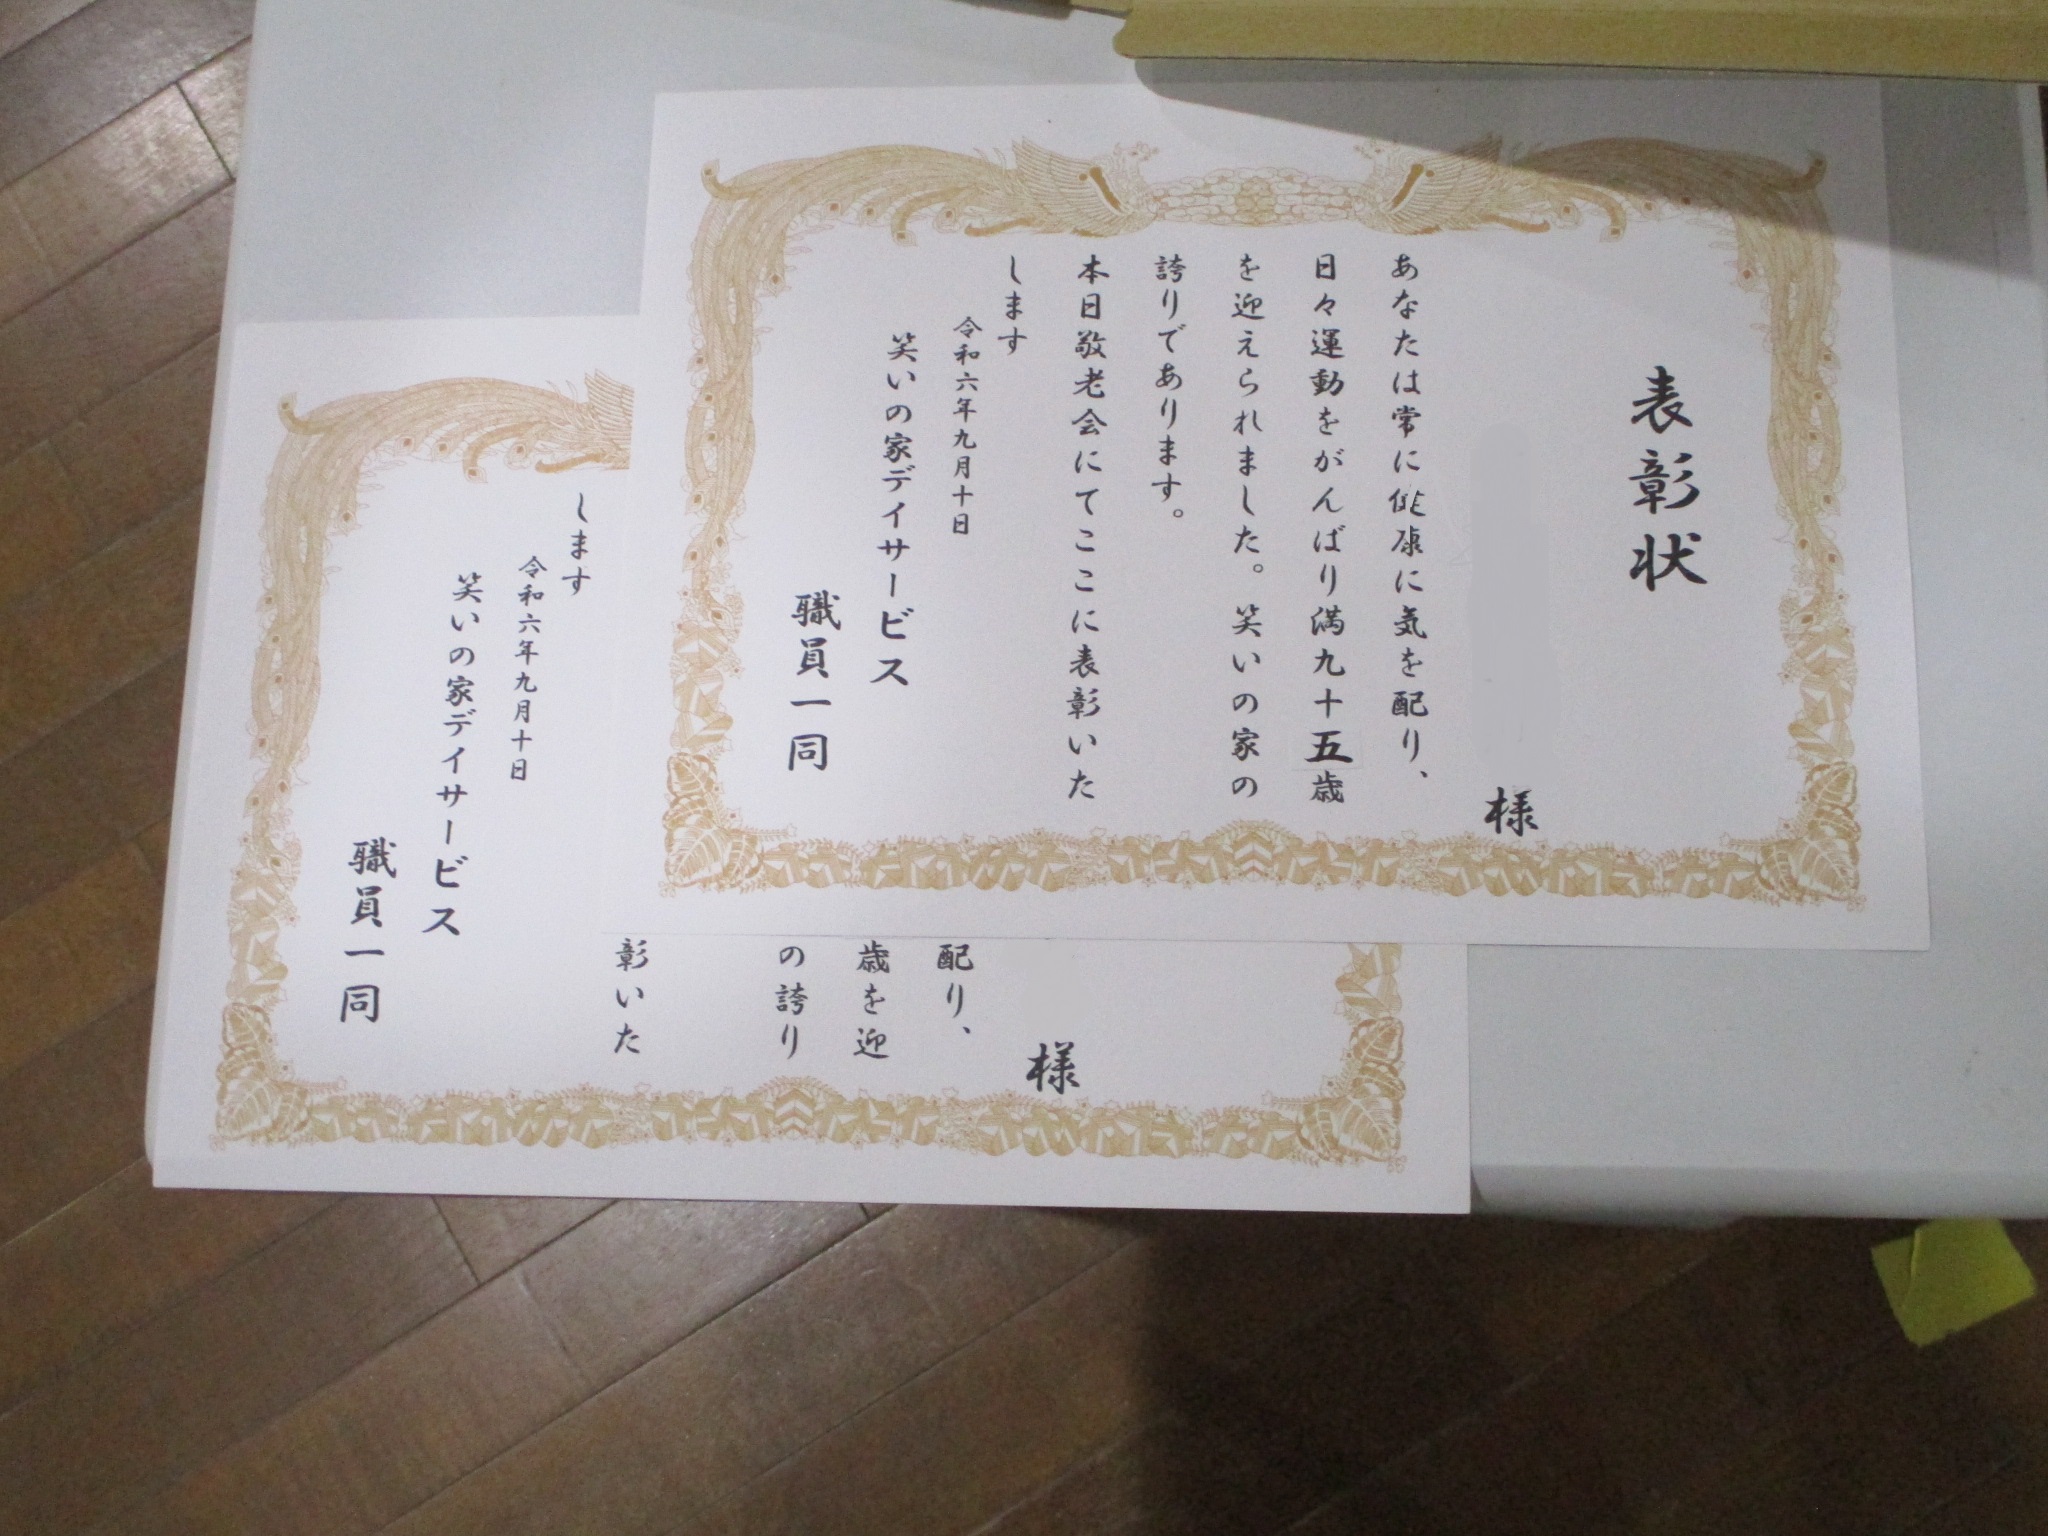 表彰状
様
あなたは常に健康に気を配り、
日々運動をがんばり満九十五歳
を迎えられました。笑いの家の
誇りであります。
本日敬老会にてここに表彰いた
します
令和六年九月十日
笑いの家デイサービス
職員一同
様
配り、
歳を迎
の誇り
彰いた
します
令和六年九月十日
笑いの家デイサービス
職員一同